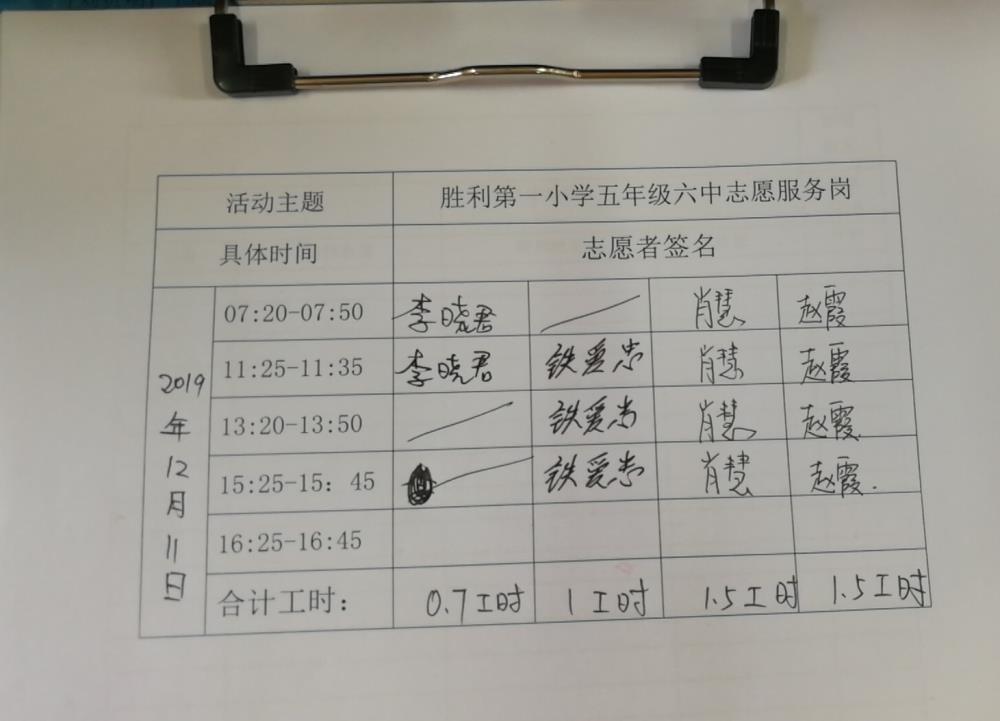 活动主题 胜利第一小学五年级六中志愿服务岗
具体时间 志愿者签名
2019年12月11日
07:20-07:50 李晓君 肖慧 赵霞
11:25-11:35 李晓君 铁爱忠 肖慧 赵霞
13:20-13:50 铁爱忠 肖慧 赵霞
15:25-15：45 铁爱忠 肖慧 赵霞.
16:25-16:45
合计工时： 0.7工时 1工时 1.5工时 1.5工时